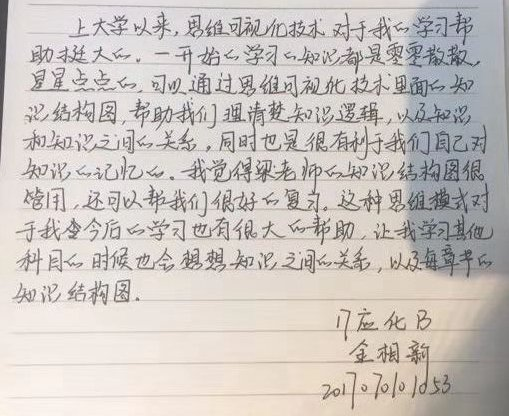 上大学以来,思维可视化技术对于我的学习帮
助挺大的。一开始的学习的知识都是零零散散,
星星点点的,可以通过思维可视化技术里面的知
识结构图,帮助我们理清楚知识逻辑,以及知识
和知识之间的关系,同时也是很有利于我们自己对
知识的记忆的。我觉得梁老师的知识结构图很
管用,还可以帮我们很好的复习。这种思维模式对
于我今后的学习也有很大的帮助,让我学习其他
科目的时候也会想想知识之间的关系,以及每章节的
知识结构图。
17应化B
金相新
20170701053